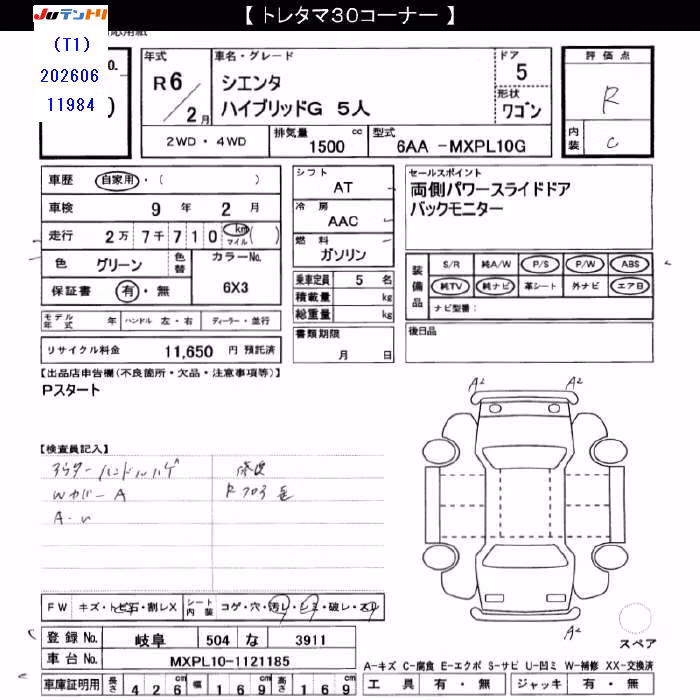 【 トレタマ30コーナー 】
JUテントリ
(T1)
202606
11984
年式
R6/2月
車名・グレード
シエンタ
ハイブリッドG 5人
ドア
5
形状
ワゴン
評価点
R
内装
C
2WD・4WD
排気量 1500 cc
型式 6AA -MXPL10G
車歴 自家用・( )
車検 9年 2月
走行 2万7千710 km マイル ( )
色 グリーン
色替
カラーNo. 6X3
保証書 有・無
シフト AT
冷房 AAC
燃料 ガソリン
乗車定員 5 名
積載量 kg
総重量 kg
セールスポイント
両側パワースライドドア
バックモニター
装備品
S/R 純A/W P/S P/W ABS
純TV 純ナビ 革シート 外ナビ エアB
ナビ型番:
モデル年式 年 ハンドル 左・右 ディーラー・並行
リサイクル料金 11,650 円 預託済
書類期限
月 日
後日品
【出品店申告欄(不良箇所・欠品・注意事項等)】
Pスタート
【検査員記入】
Wカバー A
A2 A2
A2
FW キズ・トビ石・割レX
シート内装 コゲ・穴・汚レ・シミ・破レ・スレ
登録No. 岐阜 504 な 3911
車台No. MXPL10-1121185
車庫証明用 長さ 426cm 幅 169cm 高さ 169cm
スペア
A-キズ C-腐食 E-エクボ S-サビ U-凹ミ W-補修 XX-交換済
工具 有・無 ジャッキ 有・無